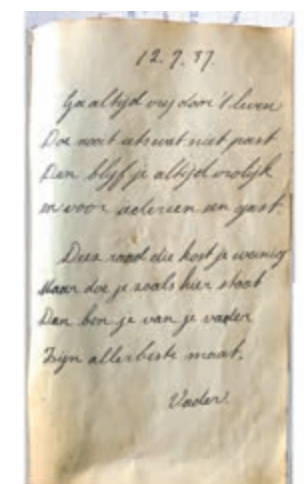 12.7.37.
Ga altijd vrij door 't leven
Doe nooit iets wat niet past
Dan blijf je altijd vrolijk
en voor iedereen een gast.
Deez raad die kost je weinig
Maar doe je zoals hier staat
Dan ben je van je vader
Zijn allerbeste maat.
Vader.